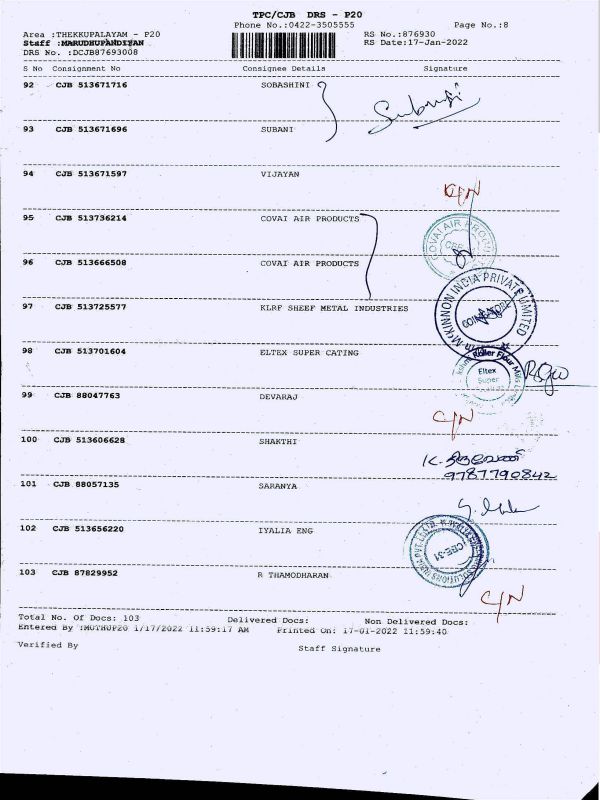 TPC/CJB DRS - P20
Phone No.:0422-3505555 Page No.:8
Area :THEKKUPALAYAM - P20 RS No.:876930
Staff :MARUDHUPANDIYAN RS Date:17-Jan-2022
DRS No. :DCJB87693008
S No Consignment No Consignee Details Signature
92 CJB 513671716 SOBASHINI
93 CJB 513671696 SUBANI
94 CJB 513671597 VIJAYAN
C/N
95 CJB 513736214 COVAI AIR PRODUCTS
COVAI AIR PRODUCTS
CBE
96 CJB 513666508 COVAI AIR PRODUCTS
97 CJB 513725577 KLRF SHEEF METAL INDUSTRIES
McKINNON INDIA PRIVATE LIMITED
COIMBATORE
98 CJB 513701604 ELTEX SUPER CATING
Roller Flour
Eltex
Super
99 CJB 88047763 DEVARAJ
C/N
100 CJB 513606628 SHAKTHI
9787790842
101 CJB 88057135 SARANYA
102 CJB 513656220 IYALIA ENG
CBE-31
103 CJB 87829952 R THAMODHARAN
C/N
Total No. Of Docs: 103 Delivered Docs: Non Delivered Docs:
Entered By :MUTHUP20 1/17/2022 11:59:17 AM Printed On: 17-01-2022 11:59:40
Verified By Staff Signature